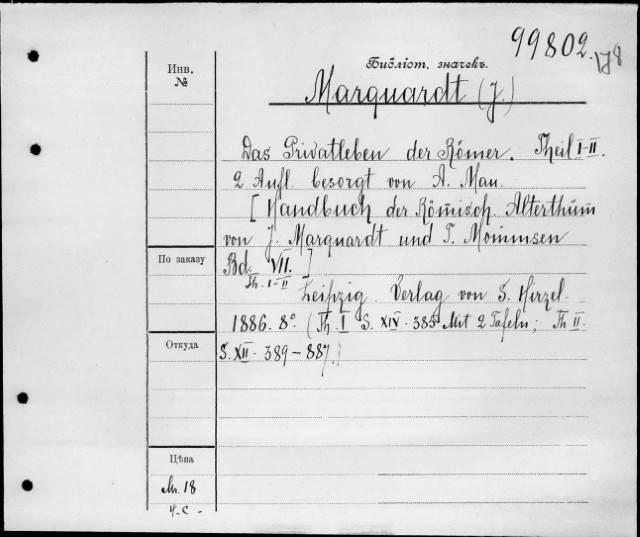 99802.
Библіот. значекъ.
Инв.
№
Marquardt (J.)
Das Privatleben der Römer. Theil I-II.
2 Aufl. besorgt von A. Mau.
[Handbuch der Römisch. Alterthüm
von J. Marquardt und T. Mommsen
По заказу
Bd. VII. ]
Th. I-II
Leipzig Verlag von S. Hirzel.
1886. 8° (Th. I S. XIV. 385 Mit 2 Tafeln; Th II.
Откуда
S. XII. 389-887.)
Цѣна
M. 18